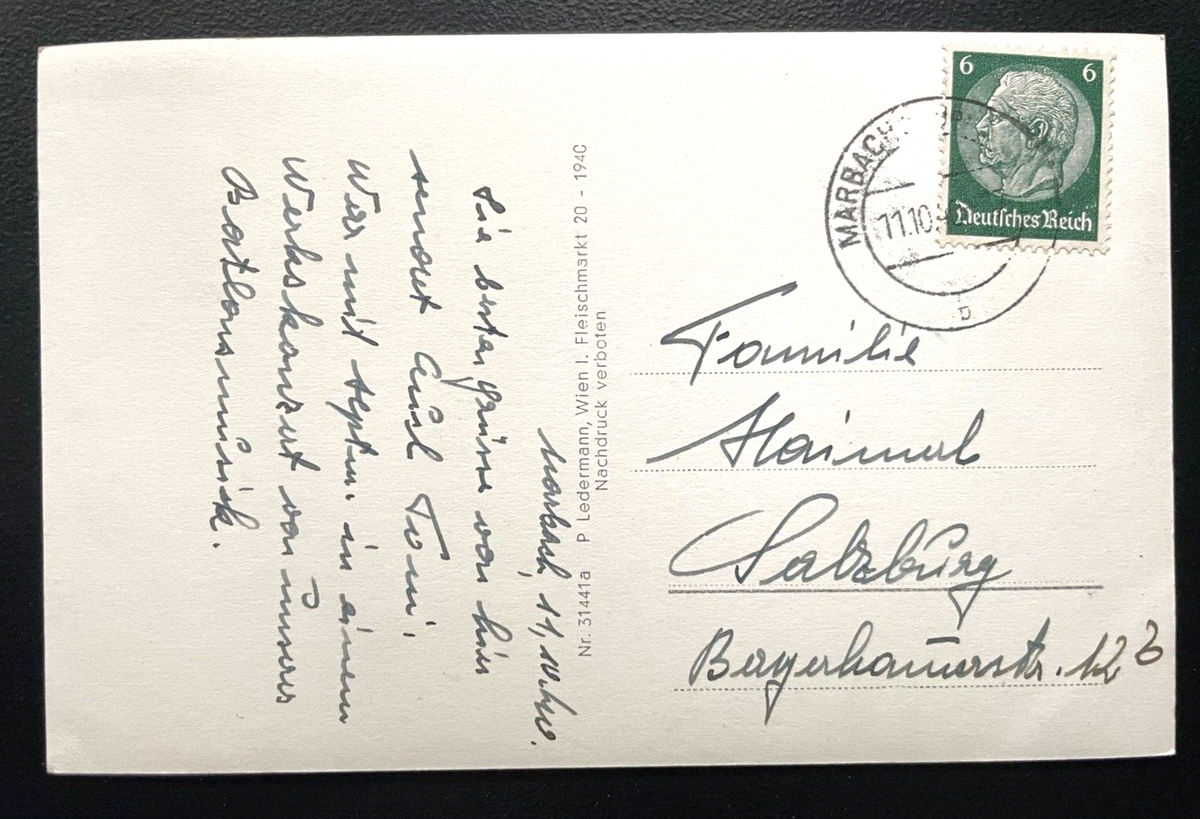 Marbach, 11.10.40.
Die besten Grüsse von hier
sendet Euch Toni.
War mit Septm. in einem
Werkskonzert von unserer
Batlonsmusik.
Nr. 31441a P Ledermann, Wien I. Fleischmarkt 20 - 1940
Nachdruck verboten
6 6
Deutsches Reich
MARBACH
11.10.
b
Familie
Haimerl
Salzburg
Bergerhauerstr. 12